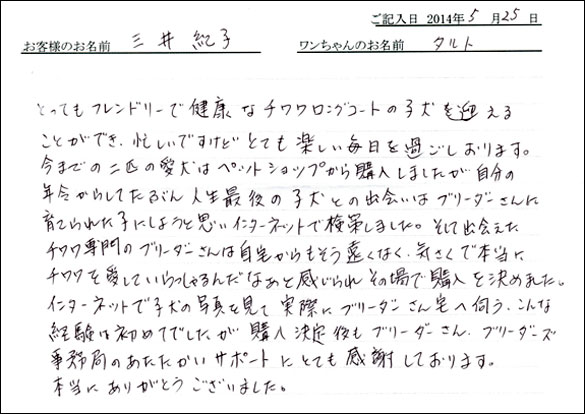 ご記入日 2014年5月25日
お客様のお名前 三井紀子 ワンちゃんのお名前 タルト
とってもフレンドリーで健康なチワワロングコートの子犬を迎える
ことができ、忙しいですけどとても楽しい毎日を過ごしおります。
今までの二匹の愛犬はペットショップから購入しましたが自分の
年令からしてたぶん人生最後の子犬との出会いはブリーダーさんに
育てられた子にしようと思いインターネットで検索しました。そして出会えた
チワワ専門のブリーダーさんは自宅からもそう遠くはなく、気さくで本当に
チワワを愛していらっしゃるんだなあと感じられその場で購入を決めました。
インターネットで子犬の写真を見て実際にブリーダーさん宅へ伺う、こんな
経験は初めてでしたが購入決定後もブリーダーさん、ブリーダーズ
事務局のあたたかいサポートにとても感謝しております。
本当にありがとうございました。